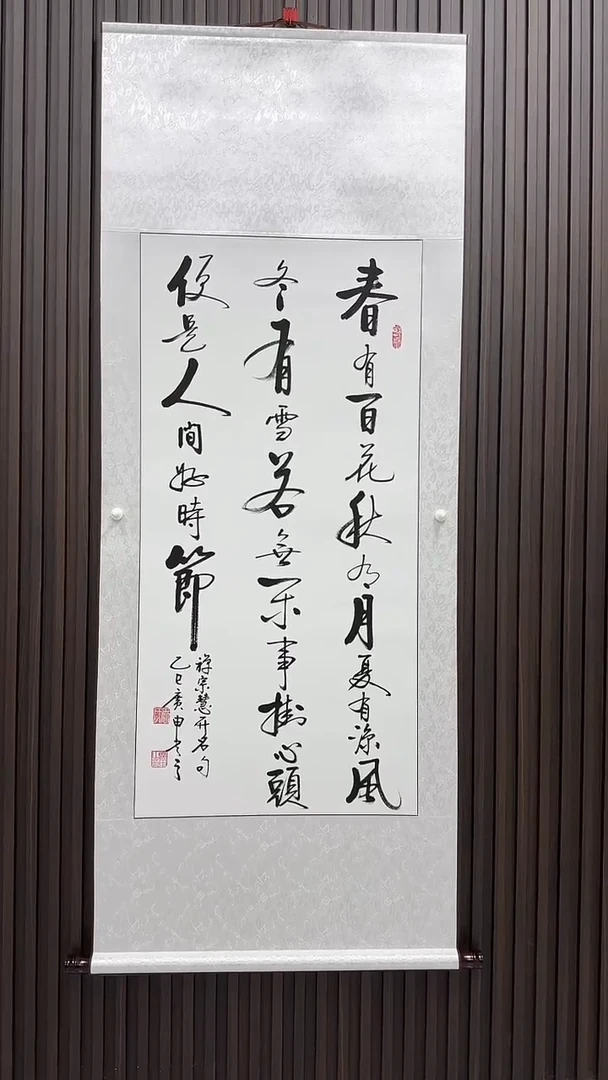 春有百花秋有月夏有涼風
冬有雪若無闲事掛心頭
便是人間好時節
禪宗慧开名句
乙巳廣申